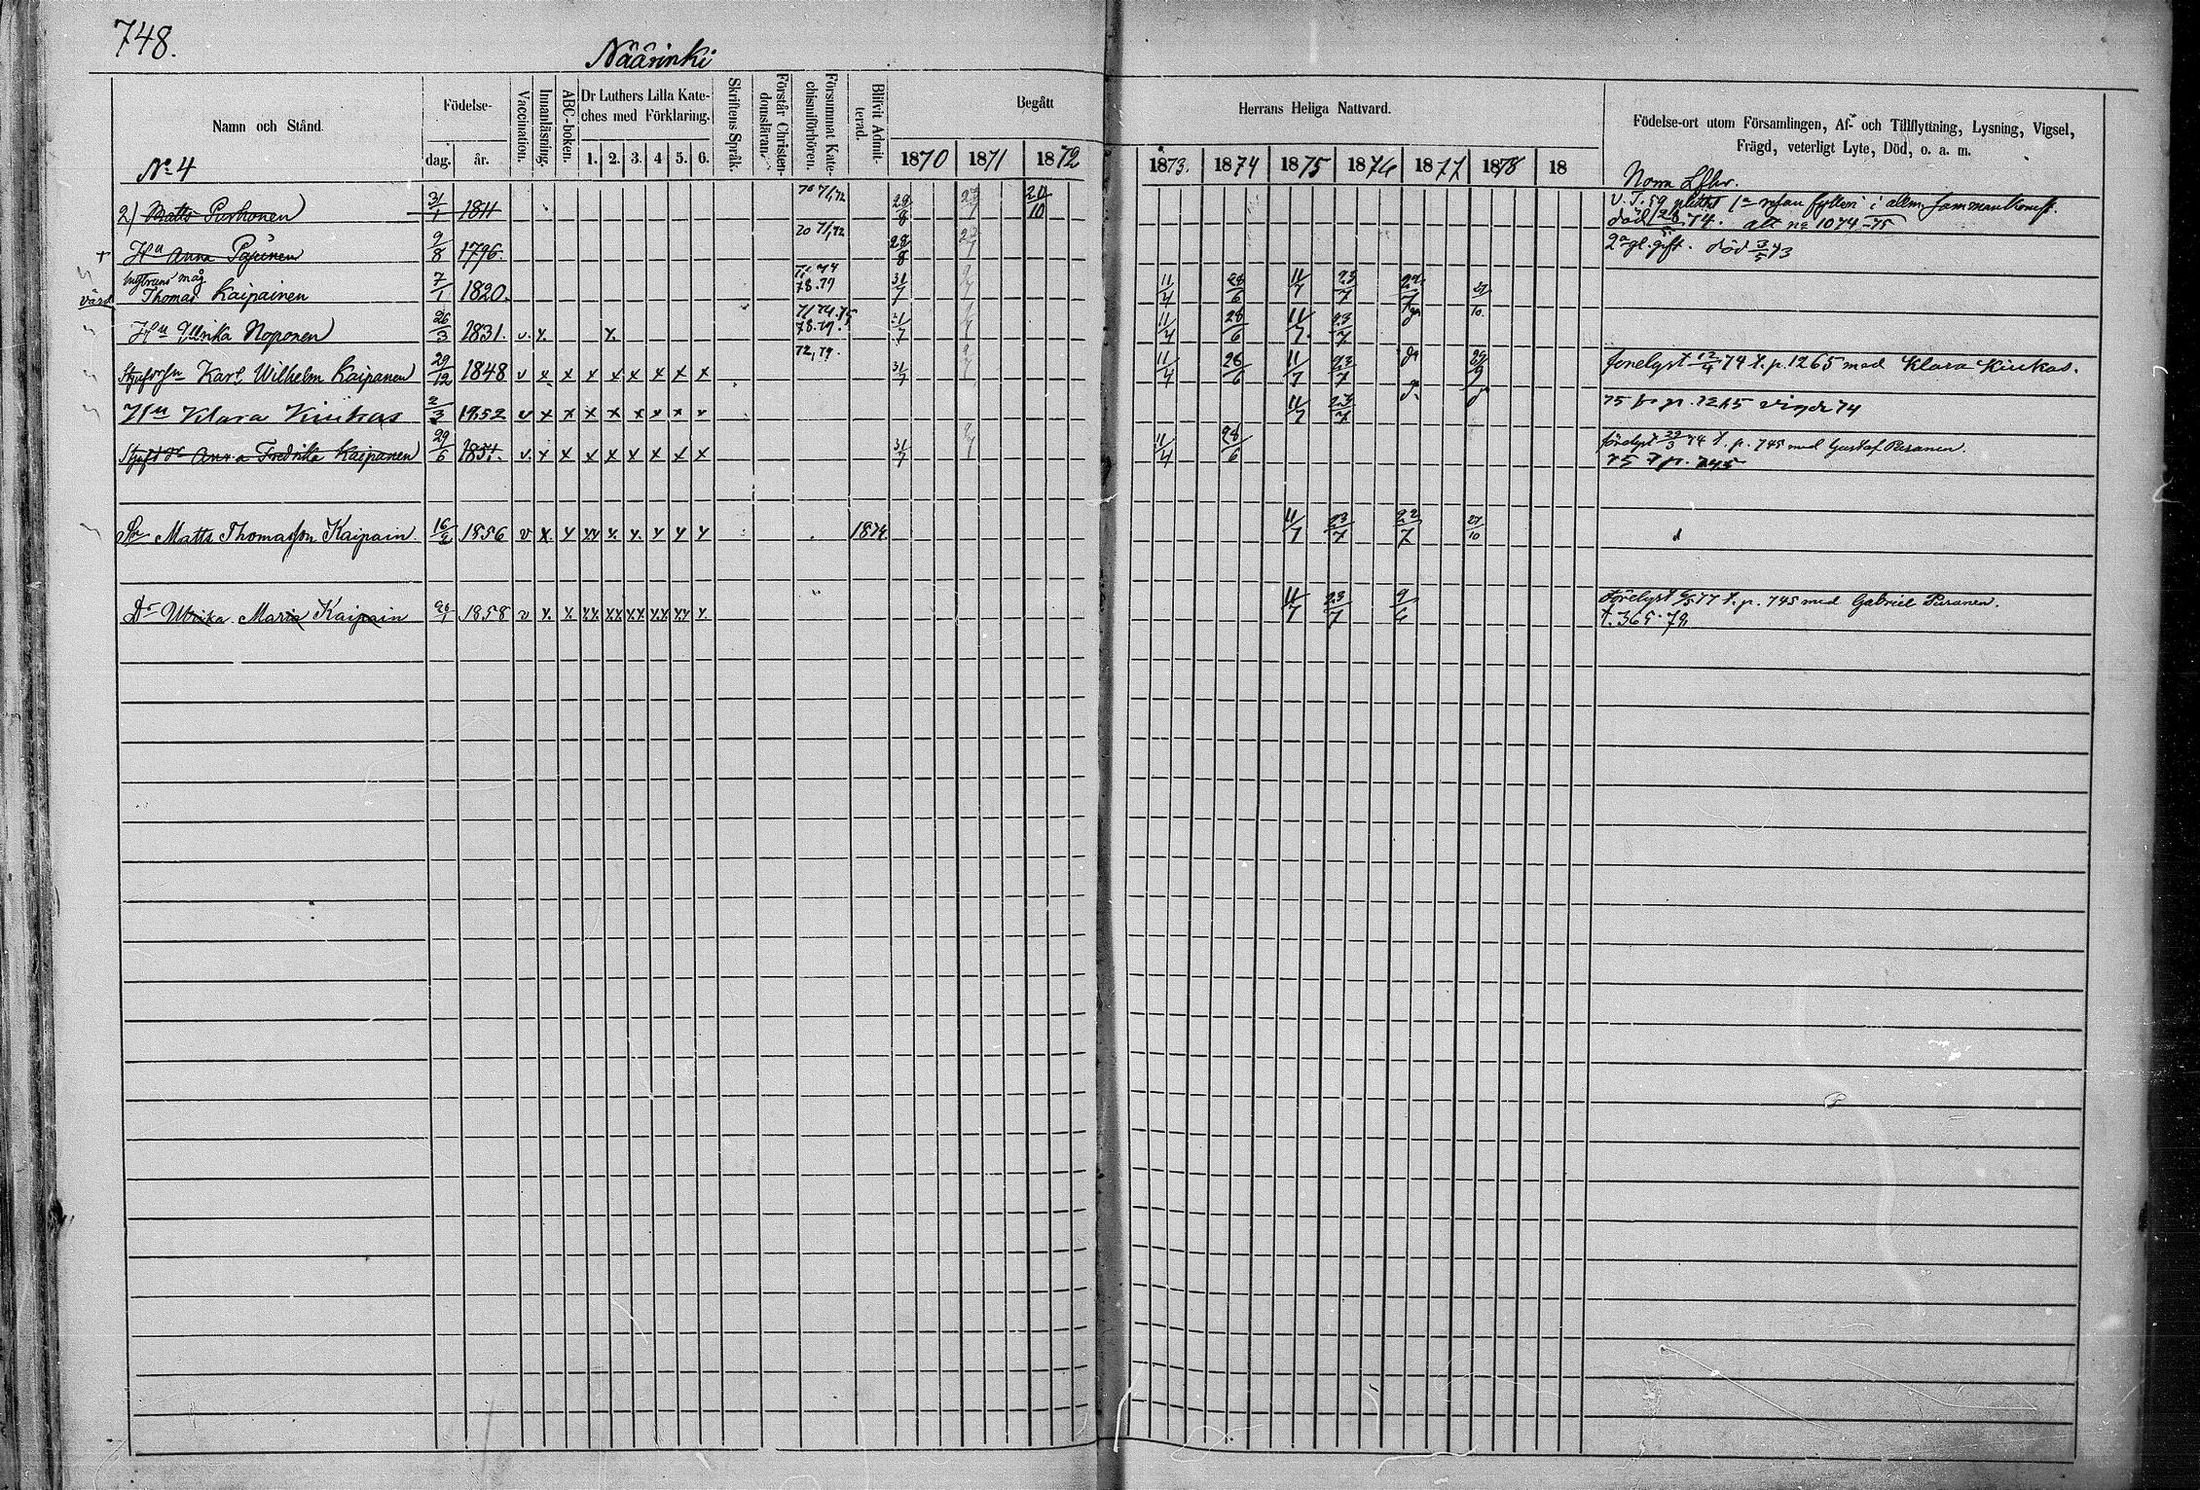 748.
Näärinki
Namn och Stånd.
Födelse-
dag. år.
Vaccination.
Innanläsning.
ABC-boken.
Dr Luthers Lilla Kate-
ches med Förklaring.
1. 2. 3. 4 5. 6.
Skriftens Språk.
Förstår Christen-
domsläran.
Försummat Kate-
chismiförhören.
Blifvit Admit-
terad.
Begått
1870 1871 1872
Herrans Heliga Nattvard.
1873. 1874 1875 1876 1877 1878 18
Födelse-ort utom Församlingen, Af- och Tillflyttning, Lysning, Vigsel,
Frägd, veterligt Lyte, Död, o. a. m.
No 4
2) Matts Purhonen 31/1 1811 70 71,72 28/8 20/10
död 74. att no 1074-75
Hu Anna 9/8 1796. 70 71,72 28/8
2a gl. gift. död 3/5 73
måg
värd Thomas Kaipainen 7/1 1820. 78.79 31/7 11/4 28/6 11/7 23/7 22/7 27/10
Hu Ulrika Noponen 26/3 1831. v. x. x. 78.79. 31/7 11/4 28/6 11/7 23/7
Karl Wilhelm Kaipanen 29/12 1848 v x x x x x x x x 72,79. 31/7 11/4 28/6 11/7 23/7 29/9
förelyst 12/4 74 t. p. 1265 med Klara Kiukas.
Hu Klara Kiukas 2/3 1852 v x x x x x x x x 11/7 23/7
75 fr p. 1265 vigde 74
Anna Fredrika Kaipanen 29/6 1851. v. x x x x x x x x 31/7 11/4 28/6
förelyst 29/3 74 t. p. 745 med Gustaf Puranen.
75 t p. 745
Sn Matts Thomasson Kaipain 16/2 1856 v x x xx x. x. x x x 1874 11/7 23/7 22/7 27/10
Dr Ulrika Maria Kaipain 1858 v x. x. xx xx xx xx xx x. 11/7 23/7 9/6
Förelyst 6/5 77 t. p. 745 med Gabriel Puranen.
t. 365.